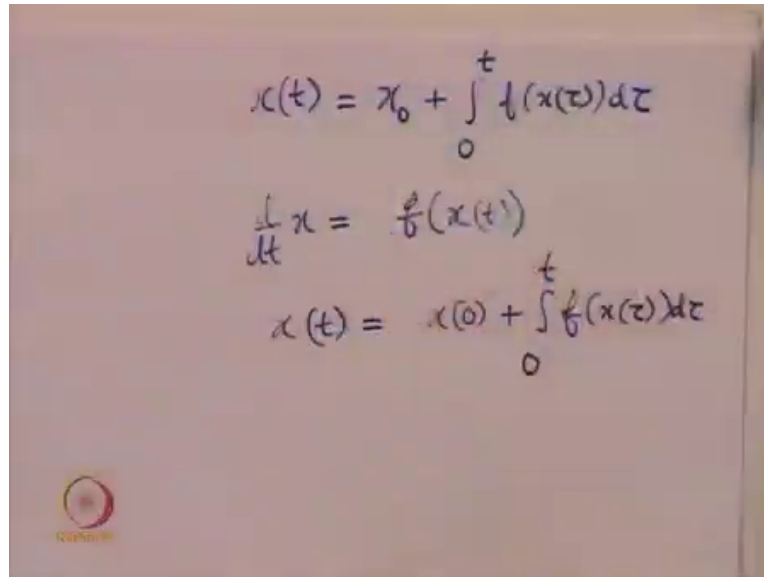 x(t) = x₀ + ∫₀ᵗ f(x(τ))dτ
d/dt x = f(x(t))
x(t) = x(0) + ∫₀ᵗ f(x(τ))dτ